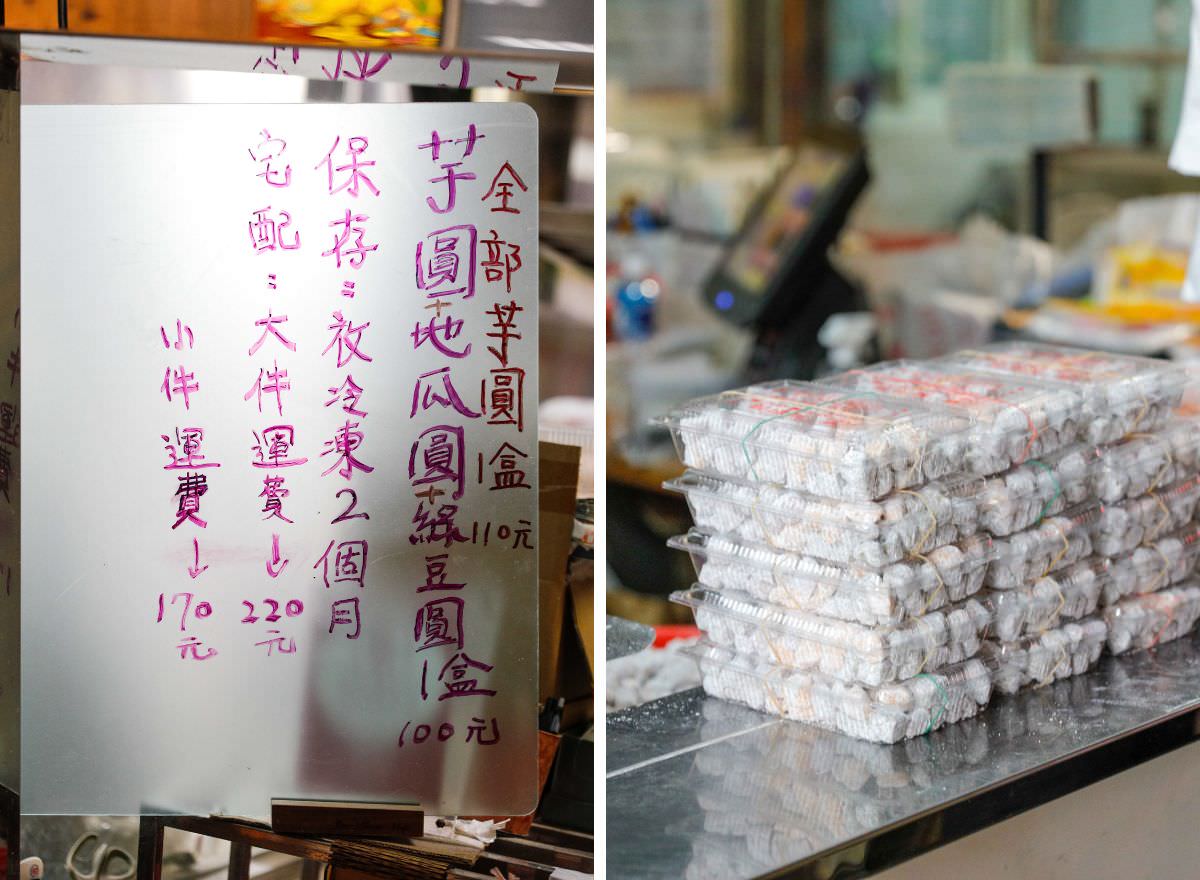 全部芋圓1盒110元
芋圓+地瓜圓+綠豆圓1盒100元
保存:放冷凍2個月
宅配:大件運費↓220元
小件運費↓170元